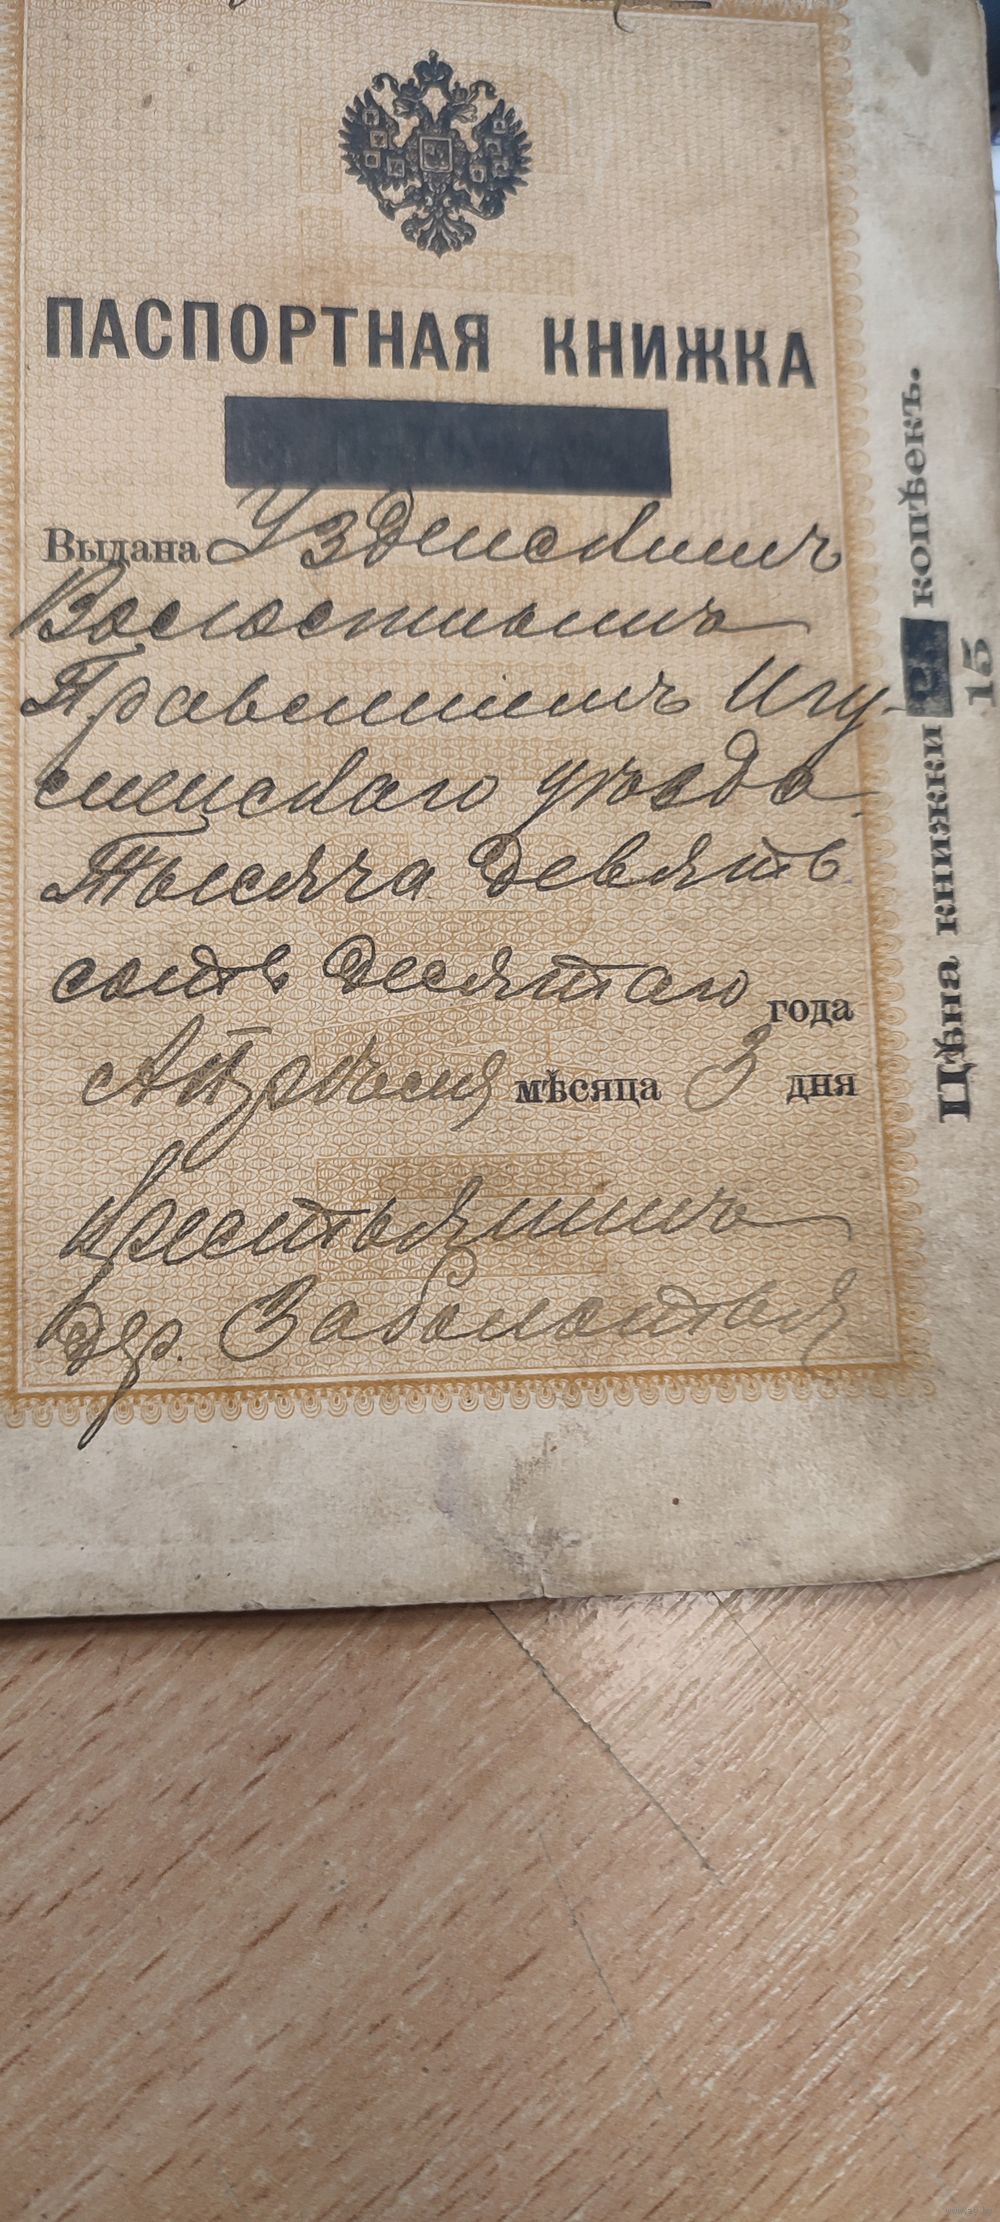 ПАСПОРТНАЯ КНИЖКА
Выдана Узденскимъ
Волостнымъ
Правленіемъ Игу-
менскаго уѣзда
Тысяча девять
сотъ десятаго года
Апрѣля мѣсяца 3 дня
Крестьянинъ
дер. Заболотья
Цѣна книжки копѣекъ.
15